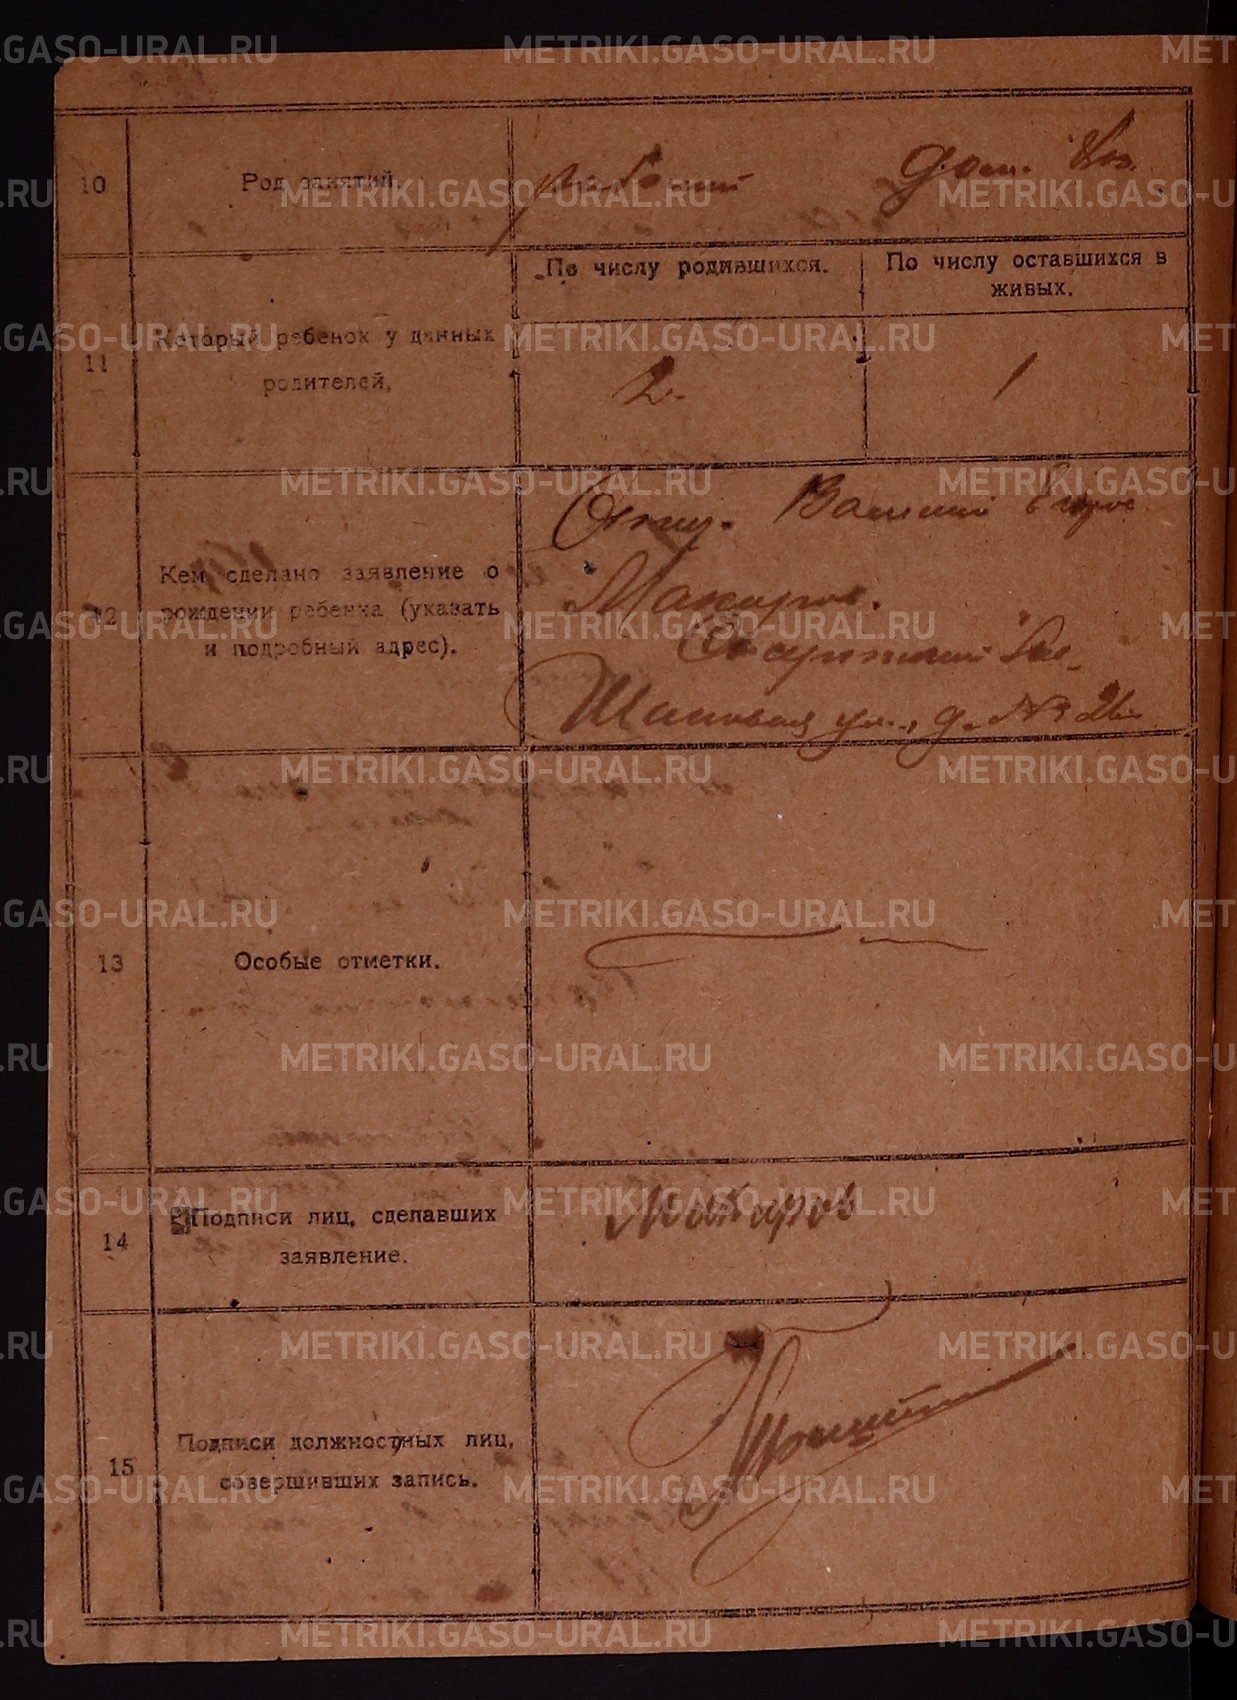 10 Род занятий. рабочий дом. хоз.
По числу родившихся. По числу оставшихся в
живых.
11 Который ребенок у данных
родителей.
2. 1
12 Кем сделано заявление о
рождении ребенка (указать
и подробный адрес).
Отец. Василий Егоров
Макаров.
ул., д. № 26
13 Особые отметки.
14 Подписи лиц, сделавших
заявление.
Макаров
15 Подписи должностных лиц,
совершивших запись.
METRIKI.GASO-URAL.RU